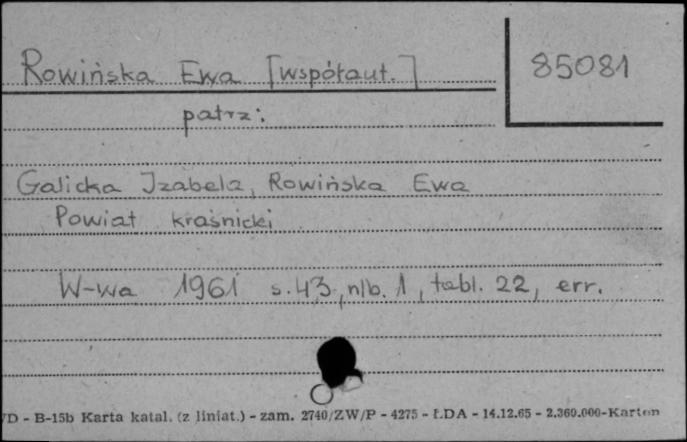 Rowińska Ewa [współaut.]
85081
patrz:
Galicka Izabela, Rowińska Ewa
Powiat kraśnicki
W-wa 1961 s. 43, nlb. 1, tabl. 22, err.
/D - B-15b Karta katal. (z liniat.) - zam. 2740/ZW/P - 4275 - Ł.DA - 14.12.65 - 2.360.000-Karton